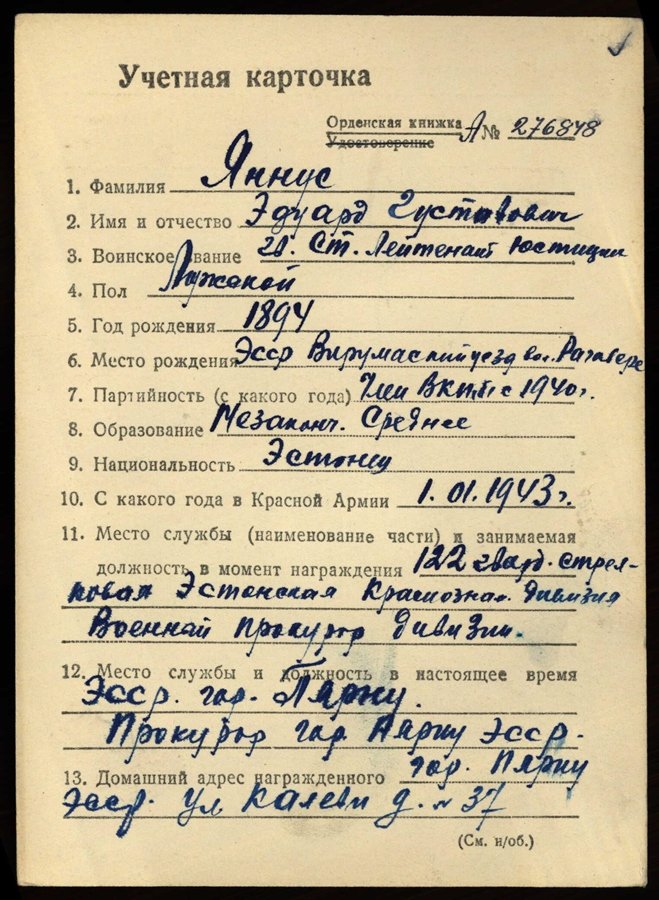 Учетная карточка
Орденская книжка А № 276848
Удостоверение
1. Фамилия Яннус
2. Имя и отчество Эдуард Густавович
3. Воинское звание гв. Ст. Лейтенант Юстиции
4. Пол Мужской
5. Год рождения 1894
6. Место рождения Эсср Вирумаский уезд вол. Раквере
7. Партийность (с какого года) Член ВКП/б с 1940 г.
8. Образование Незаконч. Среднее
9. Национальность Эстонец
10. С какого года в Красной Армии 1.01.1943 г.
11. Место службы (наименование части) и занимаемая
должность в момент награждения 122 гвард. стрел-
ковая Эстонская Краснознам. дивизия
Военный прокурор дивизии.
12. Место службы и должность в настоящее время
Эсср. гор. Пярну.
Прокурор гор Пярну Эсср.
13. Домашний адрес награжденного гор. Пярну
Эсср. ул Калеви д. № 37
(См. н/об.)